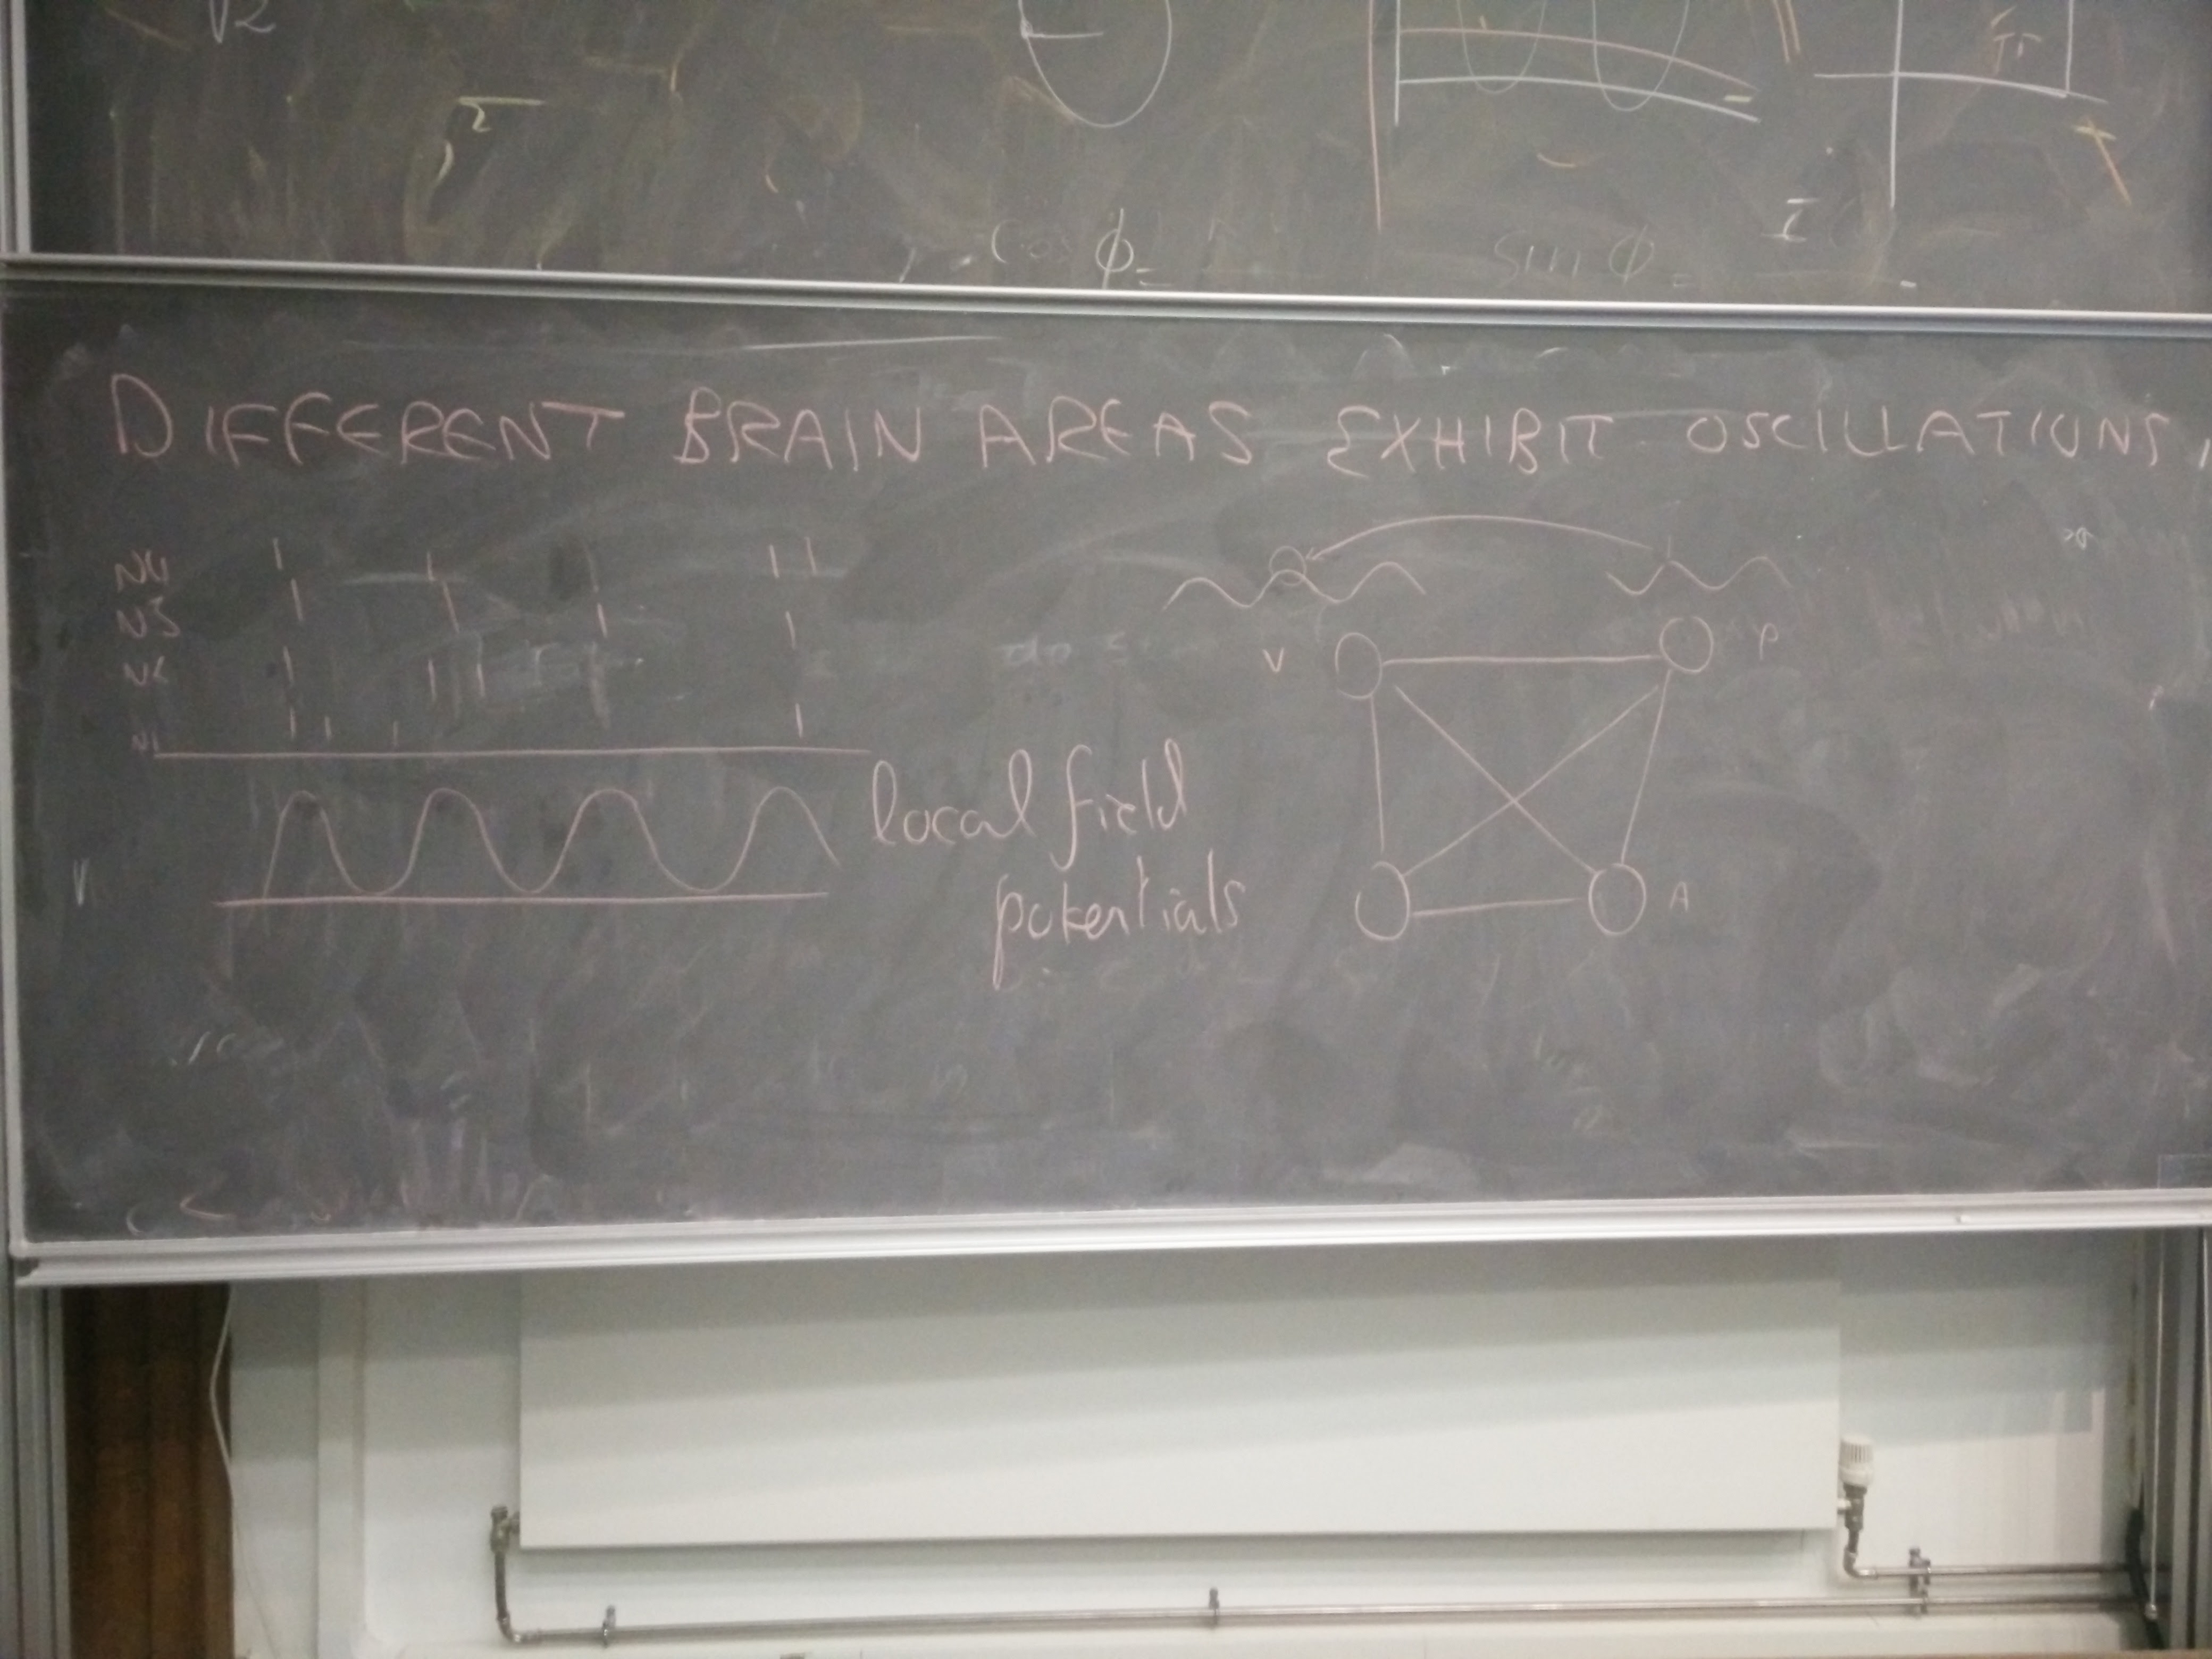 √2
cos ϕ =
sin ϕ =
I
DIFFERENT BRAIN AREAS EXHIBIT OSCILLATIONS,
N4
N3
N2
N1
V P
local field
potentials
A
V